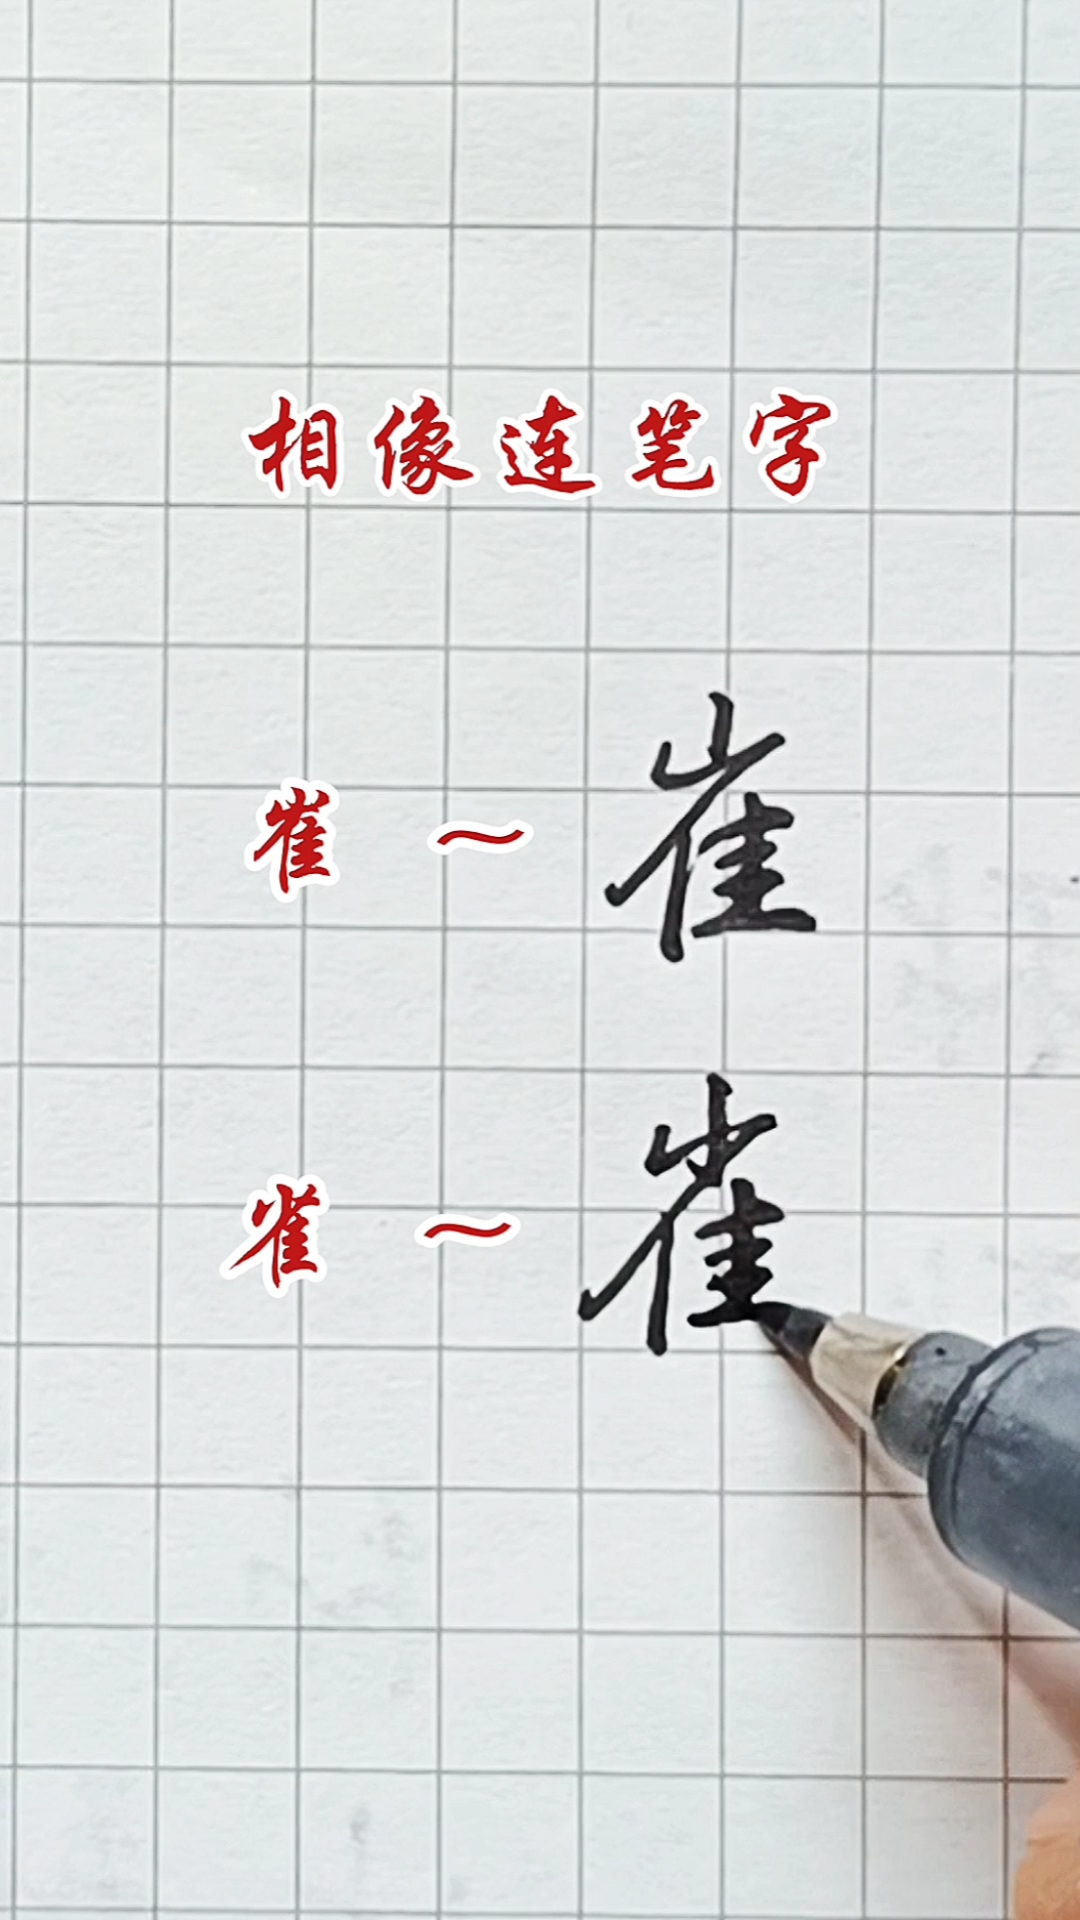 相像连笔字
崔～崔
雀～雀